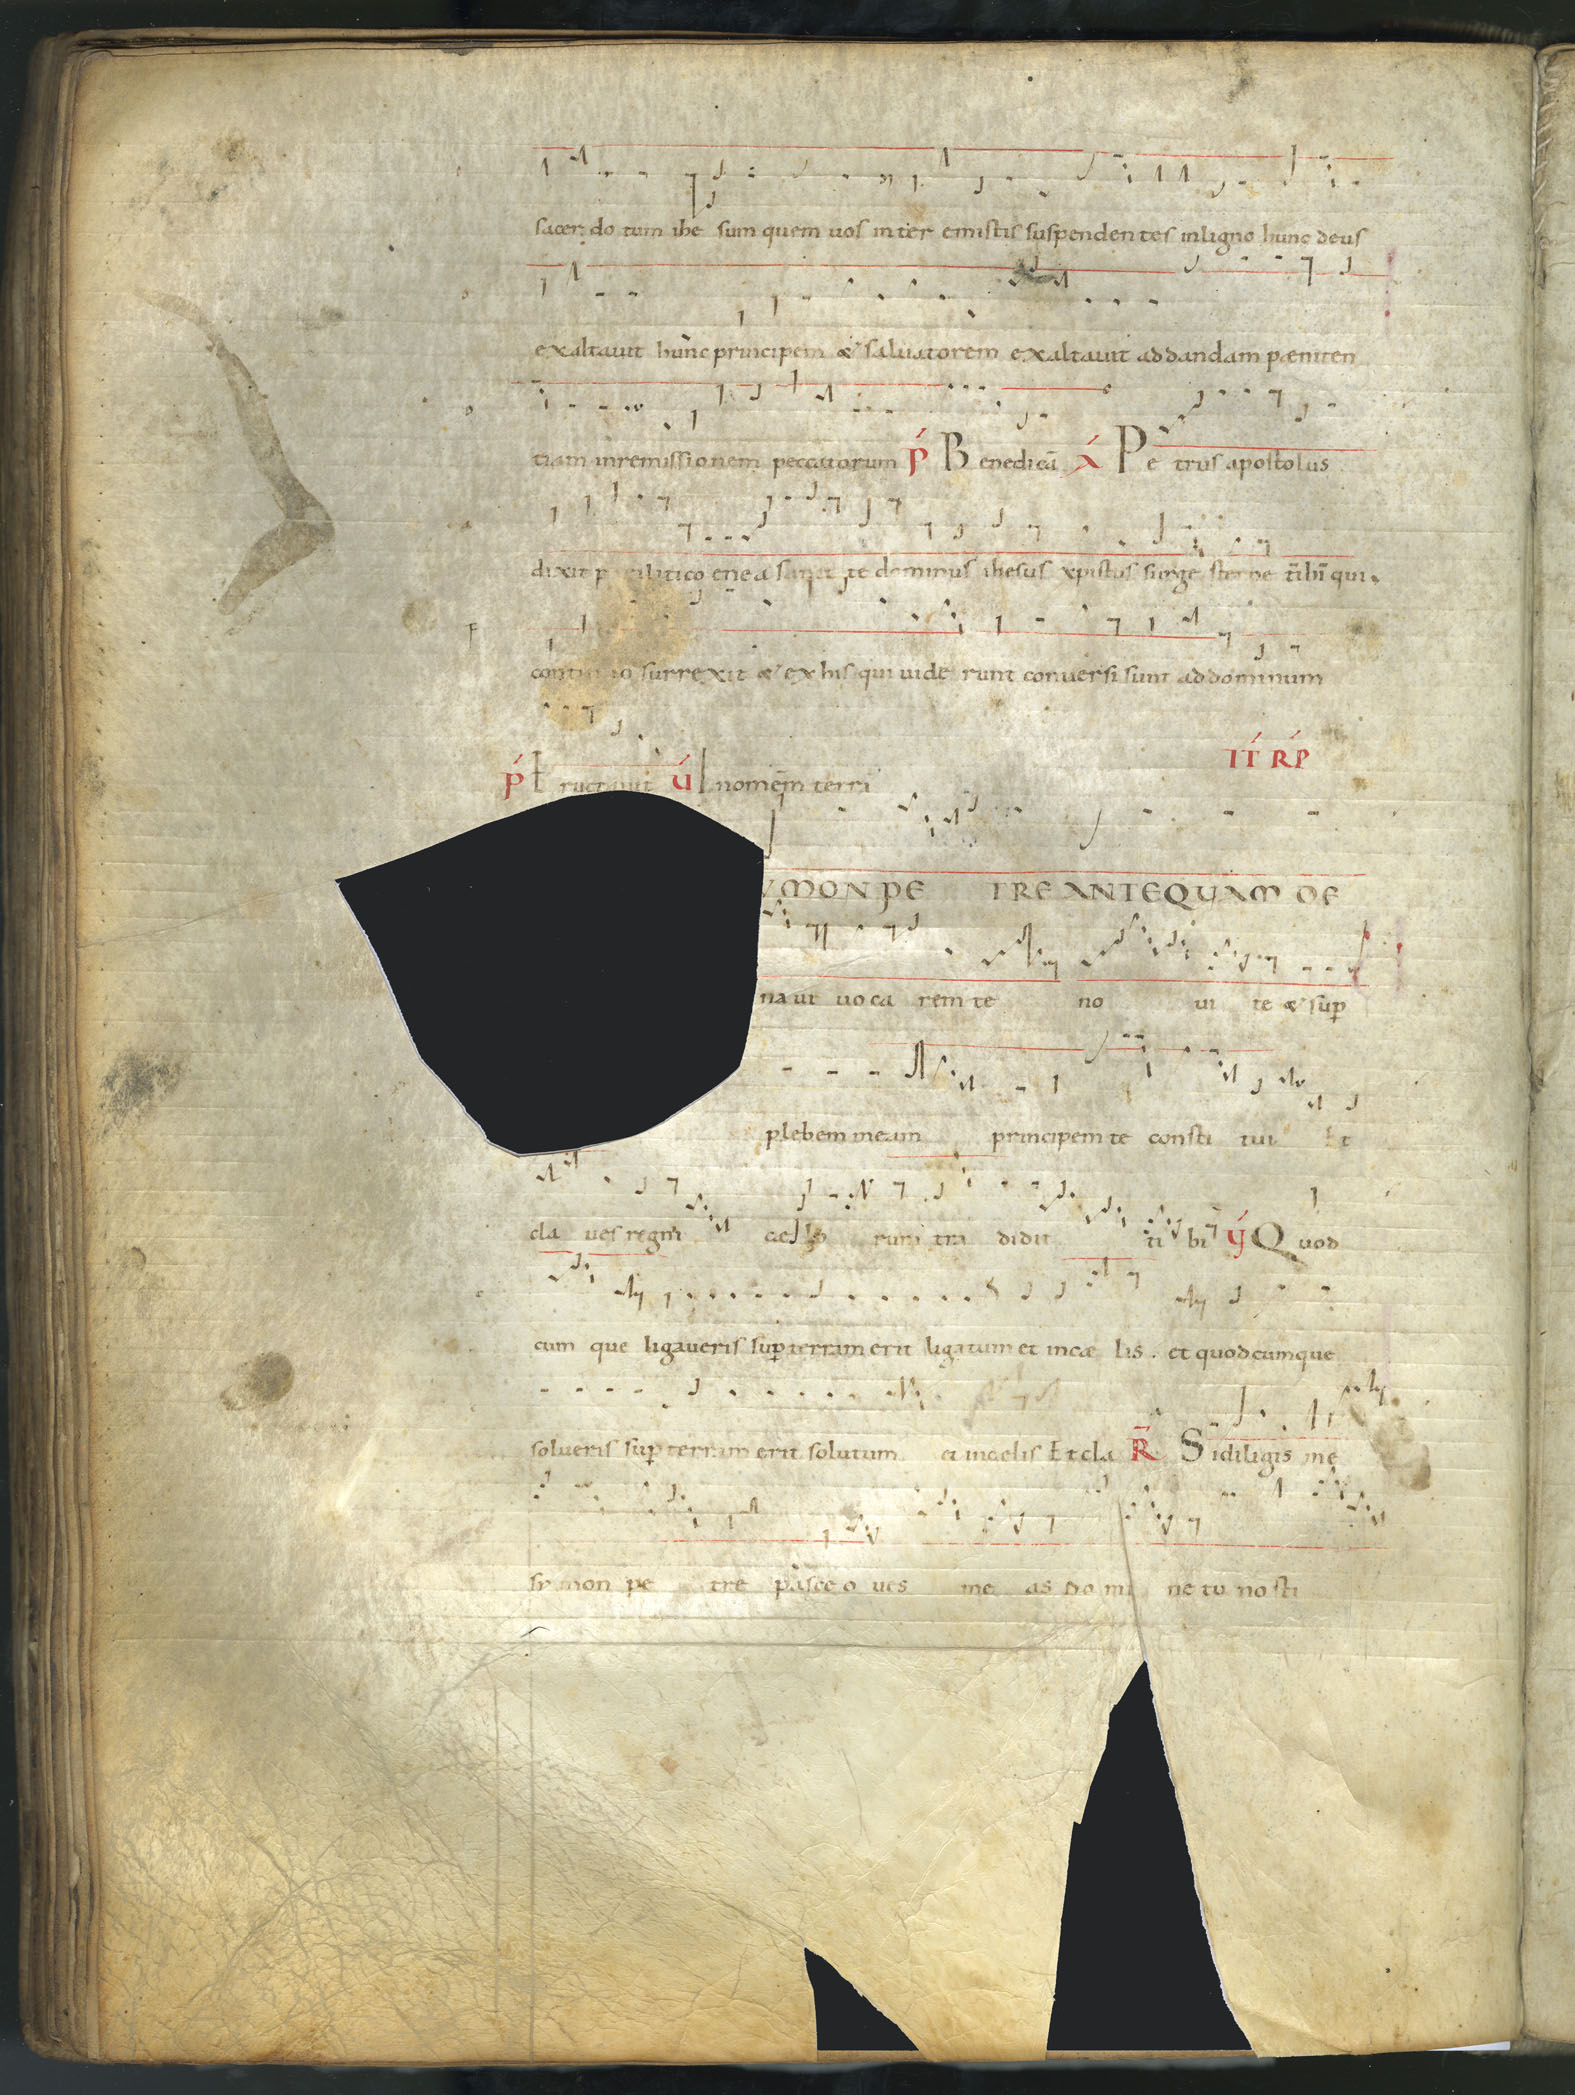 sacer do tum ihe sum quem uos inter emistis suspendentes inligno hunc deus
exaltauit hunc principem & saluatorem exaltauit addandam pæniten
tiam inremissionem peccatorum p Benedicā A Petrus apostolus
dixit paralitico enea sanet te dominus ihesus xpistus surge sterne tibi qui
continuo surrexit & exhis qui uide runt conuersi sunt addominum
IT RP
p Eructauit U Inomēm terri
YMON PE TRE ANTEQUAM DE
naui uoca rem te no ui te & sup
plebem meam principem te consti tui Et
cla ues regni caelo rum tra didit ti bi V Quod
cum que ligaueris sup terram erit ligatum et incæ lis . et quodcumque
solueris sup terram erit solutum et incelis Et cla R Sidiligis me
symon pe tre pasce o ues me as Do mi ne tu nosti